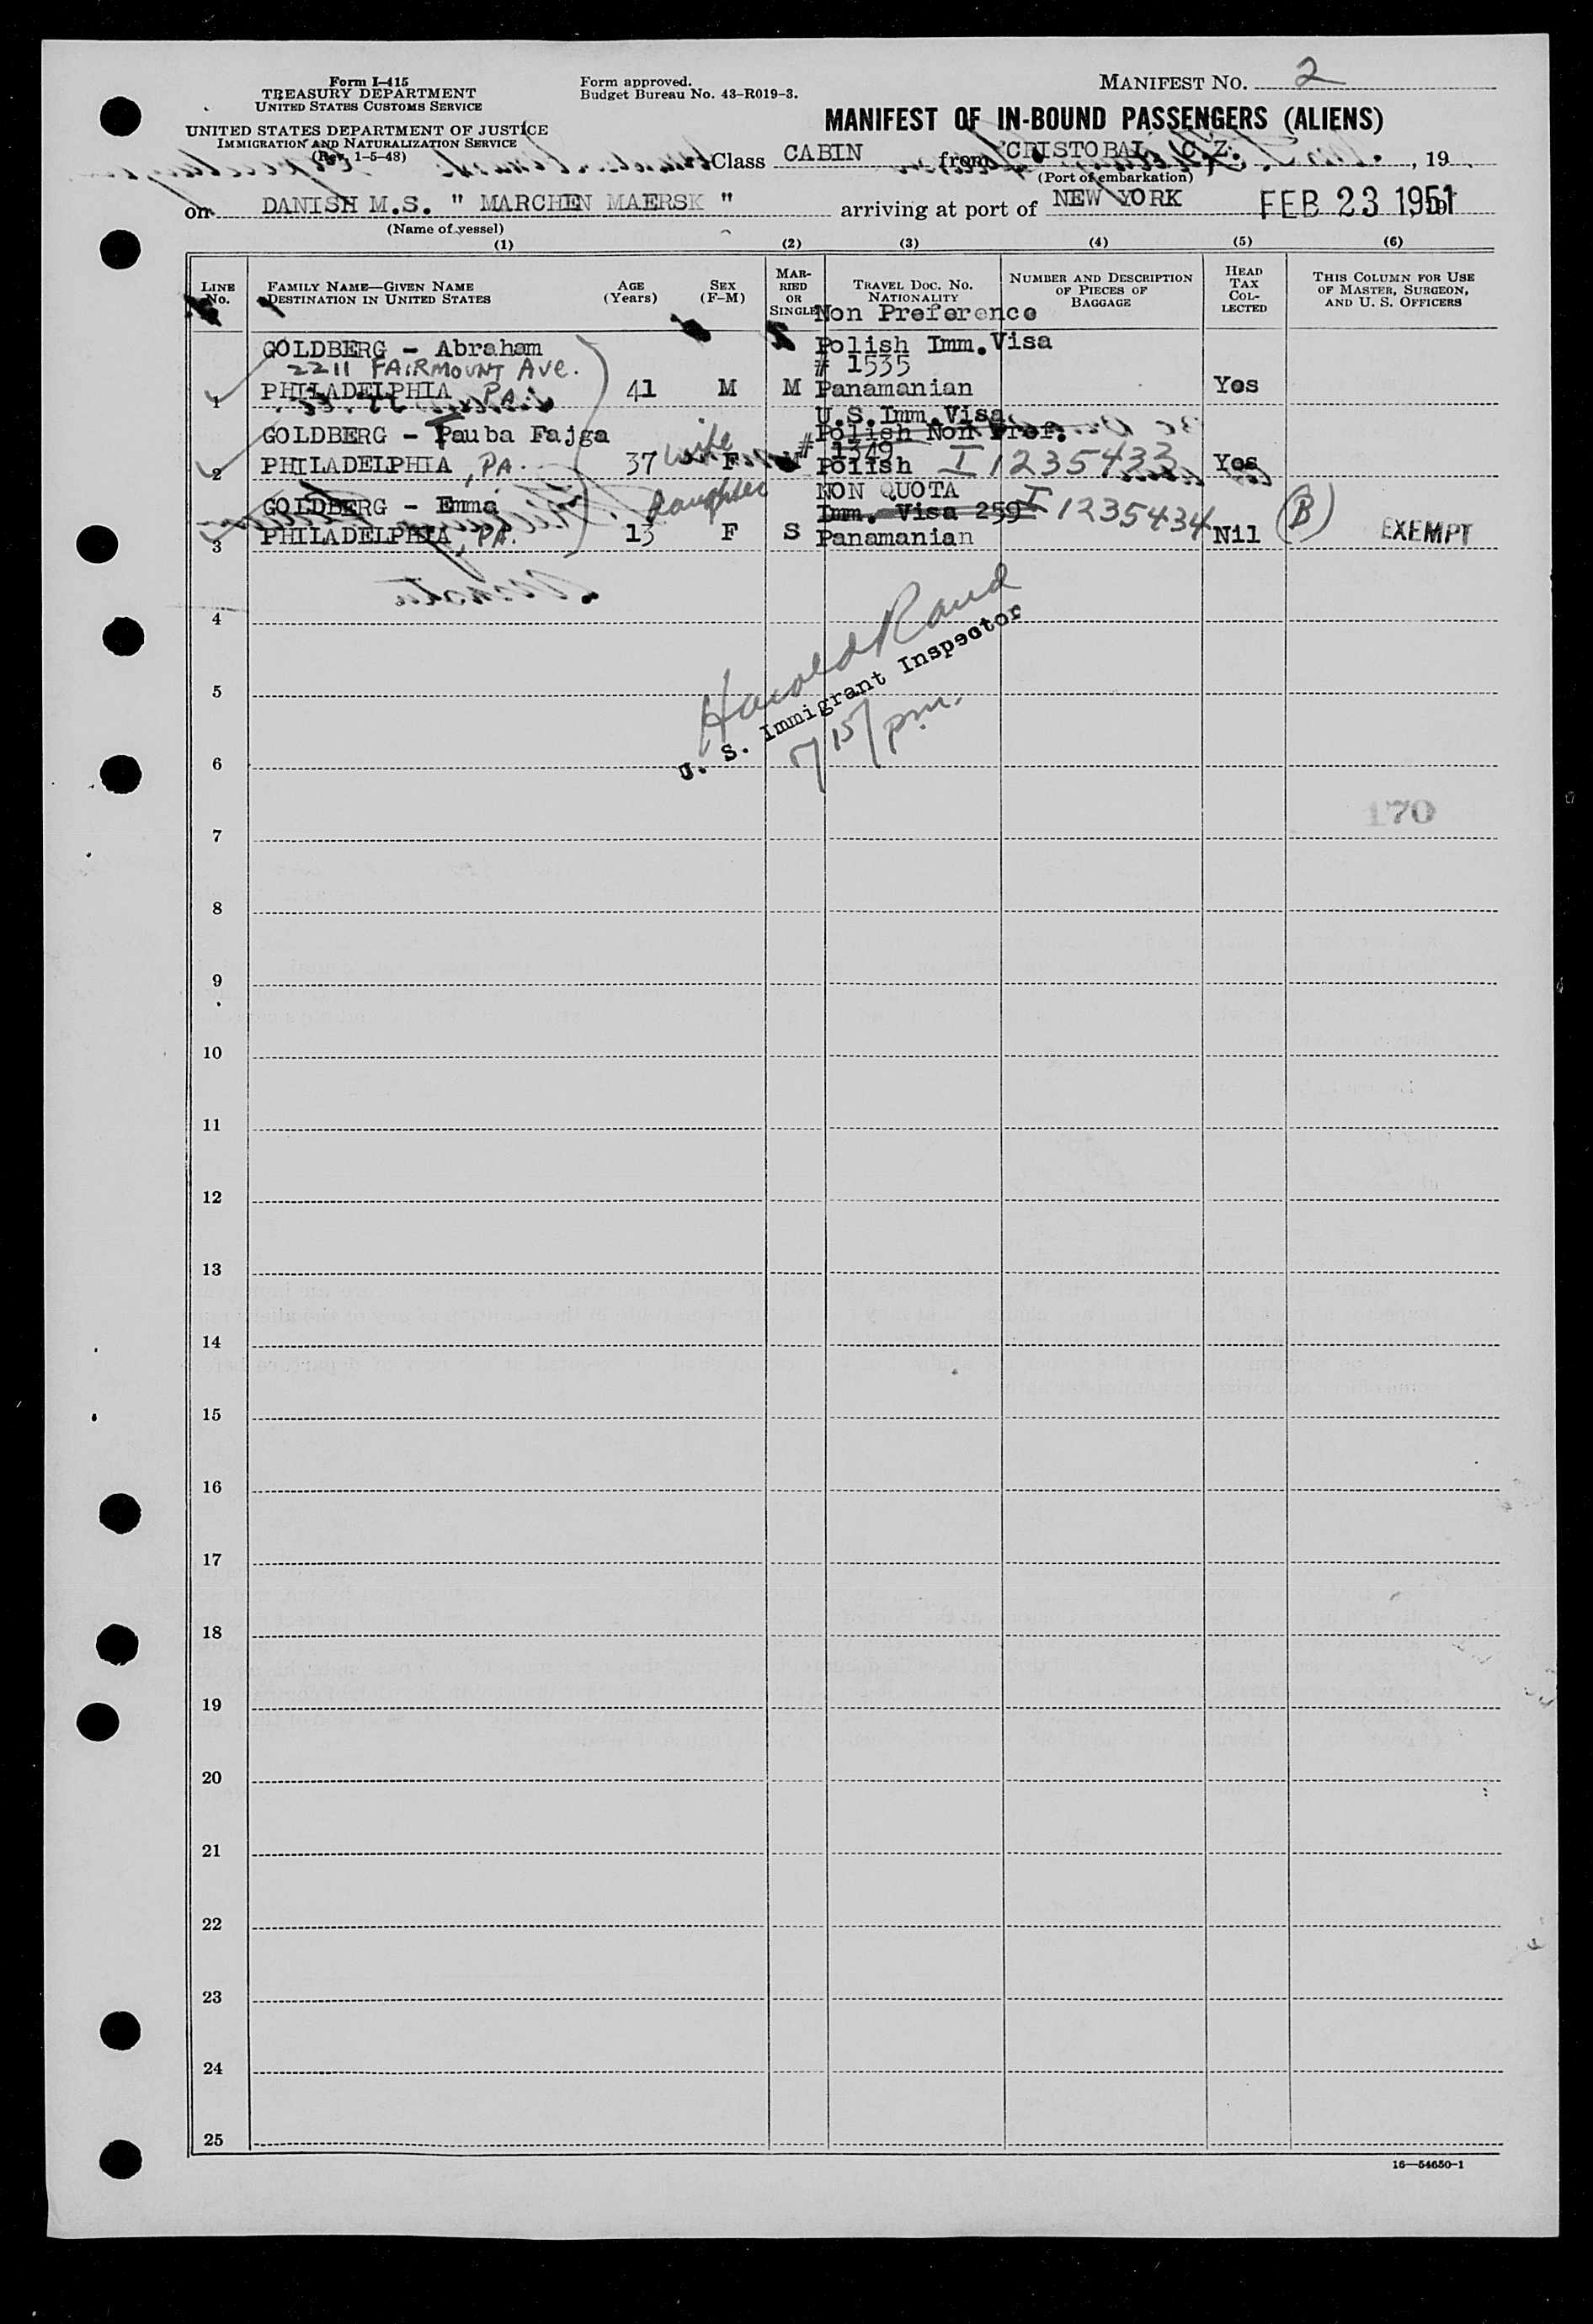 Form I-415
TREASURY DEPARTMENT
UNITED STATES CUSTOMS SERVICE
UNITED STATES DEPARTMENT OF JUSTICE
IMMIGRATION AND NATURALIZATION SERVICE
(Rev. 1-5-48)
Form approved.
Budget Bureau No. 43-R019-3.
MANIFEST NO. 2
MANIFEST OF IN-BOUND PASSENGERS (ALIENS)
Class CABIN from CRISTOBAL, C.Z. , 19
(Port of embarkation)
on DANISH M.S. " MARCHEN MAERSK " arriving at port of NEW YORK FEB 23 1951
(Name of vessel)
(1) (2) (3) (4) (5) (6)
LINE No. FAMILY NAME—GIVEN NAME DESTINATION IN UNITED STATES AGE (Years) SEX (F-M) MARRIED OR SINGLE TRAVEL DOC. NO. NATIONALITY NUMBER AND DESCRIPTION OF PIECES OF BAGGAGE HEAD TAX COLLECTED THIS COLUMN FOR USE OF MASTER, SURGEON, AND U. S. OFFICERS
Non Preference
GOLDBERG - Abraham Polish Imm. Visa
2211 FAIRMOUNT AVE. # 1535
1 PHILADELPHIA, PA. 41 M M Panamanian Yes
U.S. Imm. Visa
GOLDBERG - Pauba Fajga wife Polish Non Pref.
# 1349
2 PHILADELPHIA, PA. 37 F M Polish I 1235433 Yes
GOLDBERG - Emma Daughter NON QUOTA
Imm. Visa 259 I 1235434
3 PHILADELPHIA, PA. 13 F S Panamanian Nil (B) EXEMPT
4
Harold Rand
U. S. Immigrant Inspector
5
6
170
7
8
9
10
11
12
13
14
15
16
17
18
19
20
21
22
23
24
25
16—54650-1